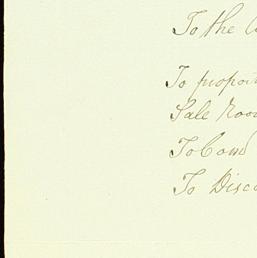 To the
To propor
Sale Roo
To Cond
To Disco